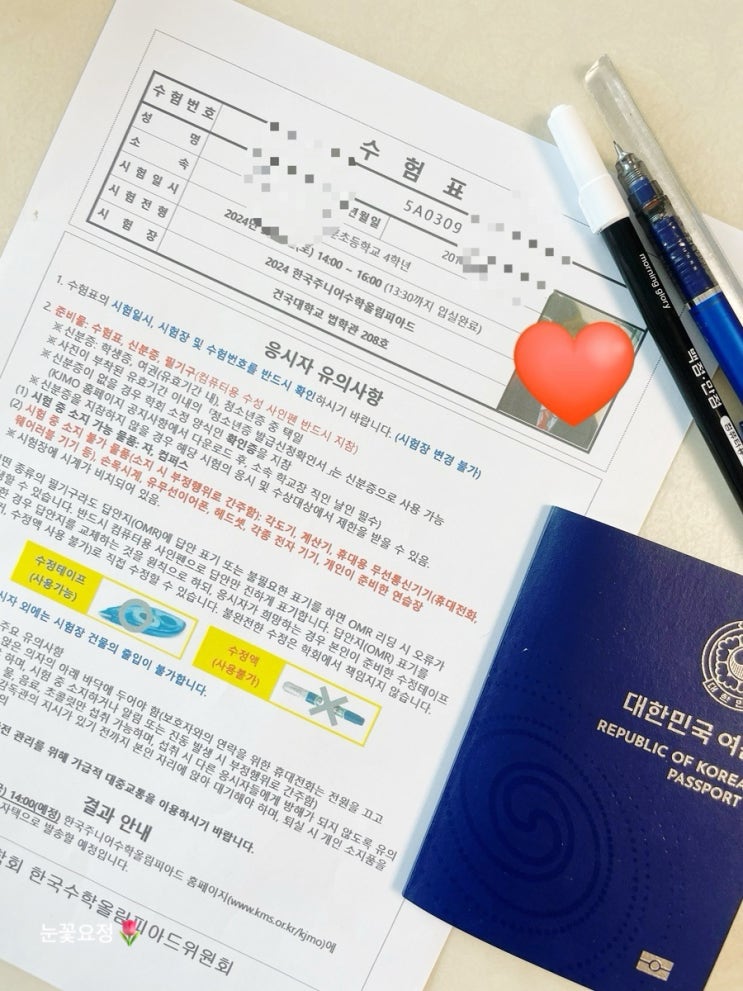 수 험 표
수 험 번 호
5A0309
성 명
년월일
201
소 속
초등학교 4학년
시 험 일 시
2024년 (토) 14:00 ~ 16:00 (13:30까지 입실완료)
시 험 전 형
2024 한국주니어수학올림피아드
시 험 장
건국대학교 법학관 208호
응시자 유의사항
1. 수험표의 시험일시, 시험장 및 수험번호를 반드시 확인하시기 바랍니다. (시험장 변경 불가)
2. 준비물: 수험표, 신분증, 필기구(컴퓨터용 수성 사인펜 반드시 지참)
※ 신분증: 학생증, 여권(유효기간 내), 청소년증 중 택일
※ 사진이 부착된 유효기간 이내의 「청소년증 발급신청확인서」는 신분증으로 사용 가능
※ 신분증이 없을 경우 학회 소정 양식인 확인증을 지참
(KJMO 홈페이지 공지사항에서 다운로드 후, 소속 학교장 직인 날인 필수)
※ 신분증을 지참하지 않을 경우 해당 시험의 응시 및 수상대상에서 제한을 받을 수 있음.
(1) 시험 중 소지 가능 물품: 자, 컴퍼스
(2) 시험 중 소지 불가 물품(소지 시 부정행위로 간주함): 각도기, 계산기, 휴대용 무선통신기기(휴대전화,
웨어러블 기기 등), 손목시계, 유무선이어폰, 헤드셋, 각종 전자 기기, 개인이 준비한 연습장
※ 시험장에 시계가 비치되어 있음.
종류의 필기구라도 답안지(OMR)에 답안 표기 또는 불필요한 표기를 하면 OMR 리딩 시 오류가
수 있습니다. 반드시 컴퓨터용 사인펜으로 답안만 진하게 표기합니다. 답안지(OMR) 표기를
경우 답안지를 교체하는 것을 원칙으로 하되, 응시자가 희망하는 경우 본인이 준비한 수정테이프
수정액 사용 불가)로 직접 수정할 수 있습니다. 불완전한 수정은 학회에서 책임지지 않습니다.
수정테이프
(사용가능)
수정액
(사용불가)
외에는 시험장 건물의 출입이 불가합니다.
유의사항
않은 의자의 아래 바닥에 두어야 함(보호자와의 연락을 위한 휴대전화는 전원을 끄고
하며, 시험 중 소지하거나 알람 또는 진동 발생 시 부정행위로 간주함)
물, 음료, 초콜릿만 섭취 가능하며, 섭취 시 다른 응시자들에게 방해가 되지 않도록 유의
감독관의 지시가 있기 전까지 본인 자리에 앉아 대기해야 하며, 퇴실 시 개인 소지품을
관리를 위해 가급적 대중교통을 이용하시기 바랍니다.
결과 안내
14:00(예정) 한국주니어수학올림피아드 홈페이지(www.kms.or.kr/kjmo)에
자택으로 발송할 예정입니다.
한국수학올림피아드위원회
눈꽃요정
morning glory
백점·만점
대한민국 여
REPUBLIC OF KOREA
PASSPORT